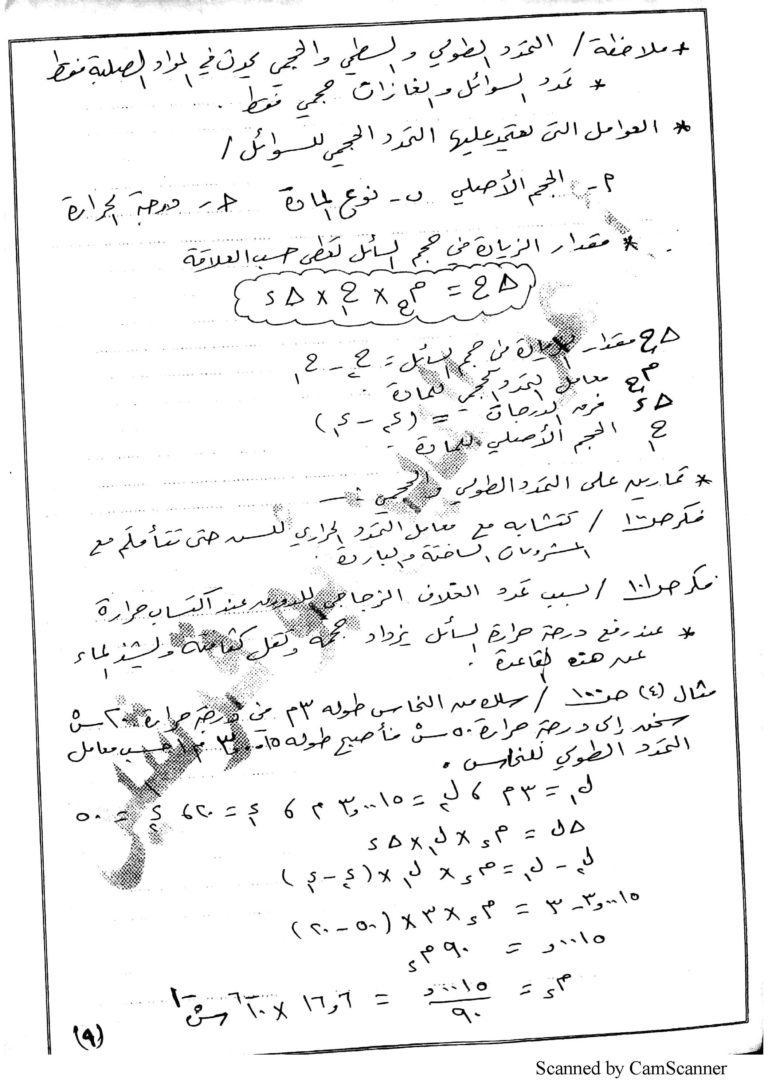 * ملاحظة / التمدد الطولي والسطحي والحجمي يحدث في المواد الصلبة فقط
* تمدد السوائل والغازات حجمي فقط .
* العوامل التي يعتمد عليها التمدد الحجمي للسوائل /
م- الحجم الأصلي ب- نوع المادة حـ- درجة الحرارة
* مقدار الزيادة في حجم السائل تعطى حسب العلاقة
Δح = مح × ح١ × Δد
Δح مقدار الزيادة في حجم السائل = ح٢ - ح١
مح معامل التمدد الحجمي للمادة .
Δد فرق الدرجات = (د٢ - د١)
ح١ الحجم الأصلي للمادة
* تمارين على التمدد الطولي والحجمي :-
فكر صـ١٠٠ / تتشابه مع معامل التمدد الحراري للسن حتى تتأقلم مع
المشروبات الساخنة والباردة .
فكر صـ١٠١ / بسبب تمدد الغلاف الزجاجي للدورق عند اكتساب حرارة
* عند رفع درجة حرارة السائل يزداد حجمه وتقل كثافته ويشذ الماء
عن هذه القاعدة .
مثال (٤) صـ١٠٠ / سلك من النحاس طوله ٣م في درجة حرارة ٢٠ °س
سخن إلى درجة حرارة ٥٠ °س فأصبح طوله ٣,٠٠١٥ م احسب معامل
التمدد الطولي للنحاس .
ل١ = ٣م ، ل٢ = ٣,٠٠١٥ م ، د١ = ٢٠ ، د٢ = ٥٠
Δل = مد × ل١ × Δد
ل٢ - ل١ = مد × ل١ × (د٢ - د١)
٣,٠٠١٥ - ٣ = مد × ٣ × (٥٠ - ٢٠)
,٠٠١٥ = ٩٠ مد
مد = ,٠٠١٥ / ٩٠ = ١٦,٦ × ١٠-٦ °س-١
(٩)
Scanned by CamScanner